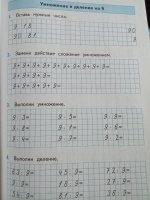 Умножение и деление на 9
1. Вставь нужные числа.
9 18 90
90 81 9
2. Замени действие сложение умножением.
9+9+9+9+9+9+9+9=
9+9+9=
9+9+9+9+9=
9+9+9+9+9+9=
3. Выполни умножение.
9·3= 9·5= 9·9=
9·8= 9·6=
9·4= 9·7= 9·2=
4. Выполни деление.
63:9= 45:9= 72:9=
18:9= 27:9= 38:9=
54:9= 81:9= 36:9=